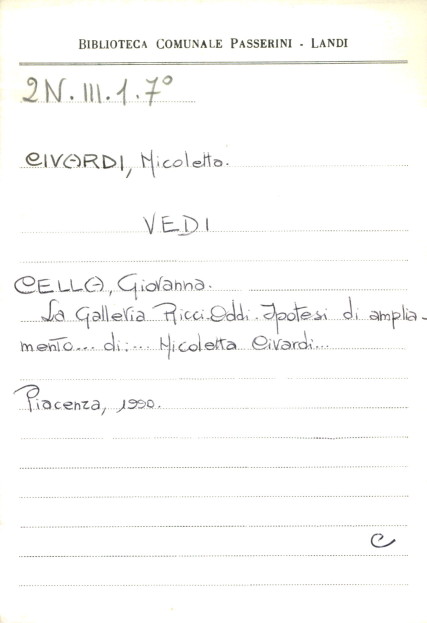 BIBLIOTECA COMUNALE PASSERINI - LANDI
2N.III.1.7°
CIVARDI, Nicoletta.
VEDI
CELLA, Giovanna.
La Galleria Ricci-Oddi. Ipotesi di amplia-
mento... di:... Nicoletta Civardi...
Piacenza, 1990.
C